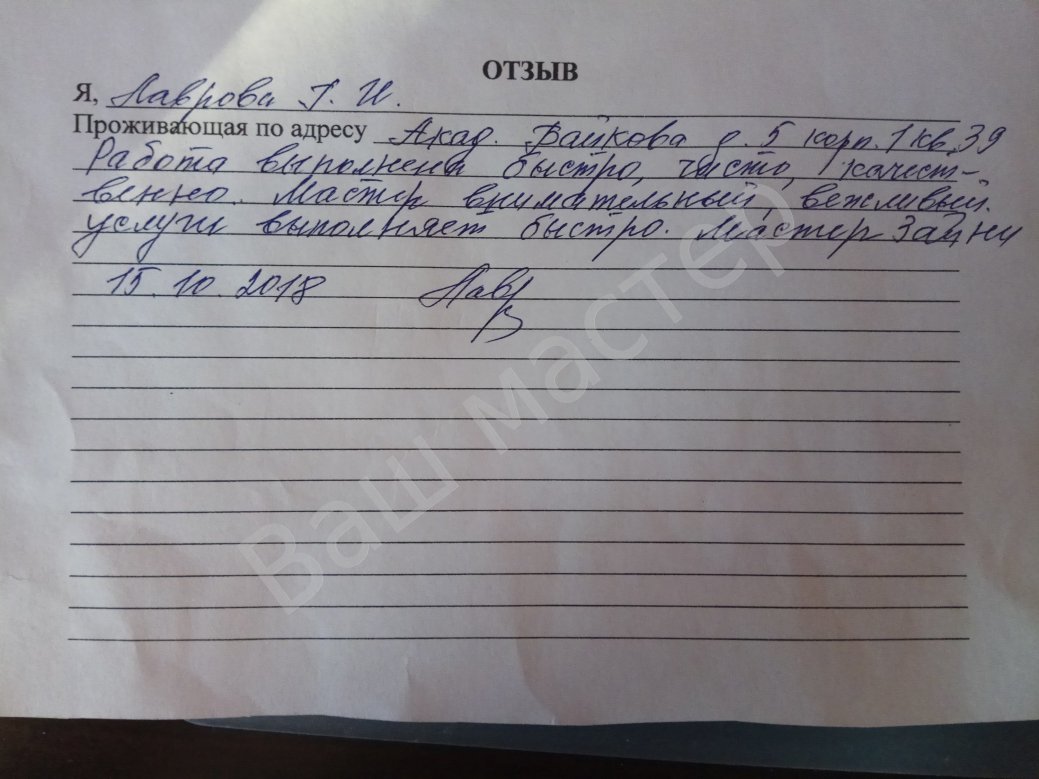 ОТЗЫВ
Я, Лаврова Г. И.
Проживающая по адресу Акад. Байкова д. 5 корп. 1 кв. 39
Работа выполнена быстро, чисто, качест-
венно. Мастер внимательный, вежливый.
услуги выполняет быстро. Мастер Зайни
15.10.2018 Лавр
Ваш мастер